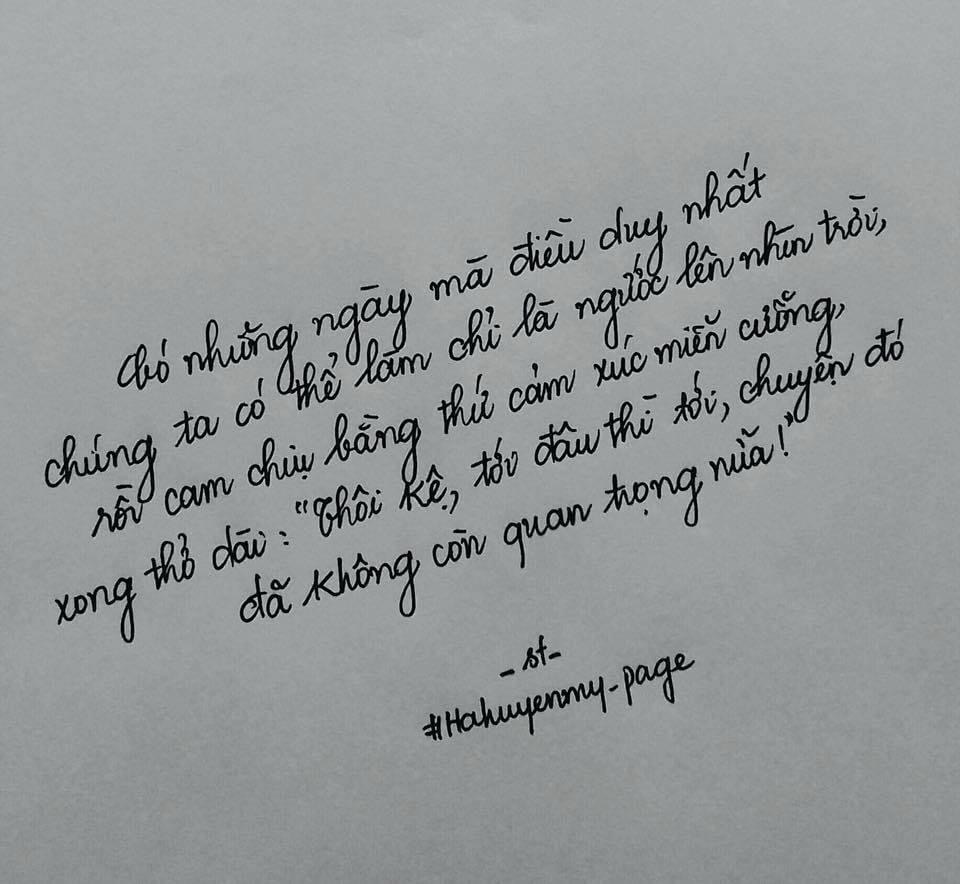 Có những ngày mà điều duy nhất
chúng ta có thể làm chỉ là ngước lên nhìn trời,
rồi cam chịu bằng thứ cảm xúc miễn cưỡng,
xong thở dài: "Thôi kệ, tới đâu thì tới, chuyện đó
đã không còn quan trọng nữa!"
_st_
#Hahuyenmy_page